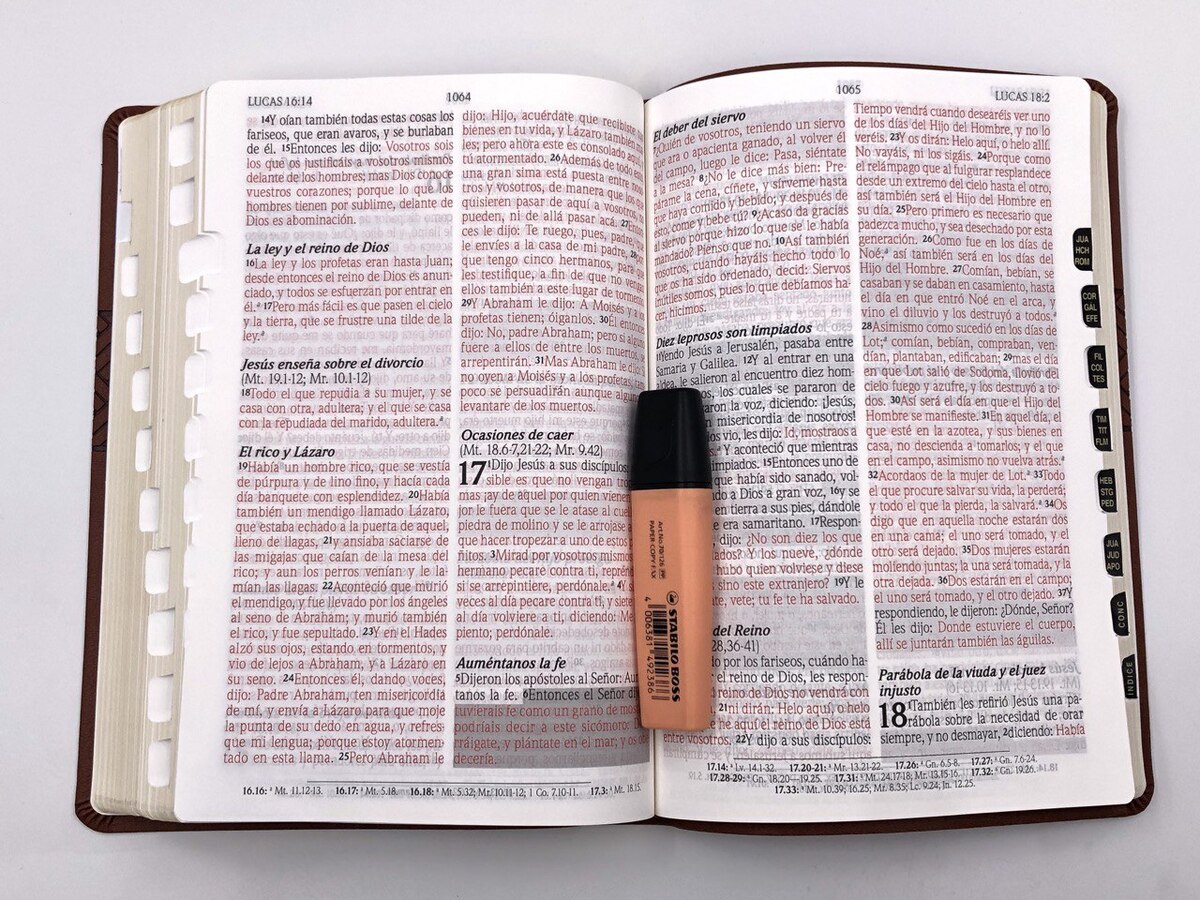 LUCAS 16:14
1064
14Y oían también todas estas cosas los
fariseos, que eran avaros, y se burlaban
de él. 15Entonces les dijo: Vosotros sois
los que os justificáis a vosotros mismos
delante de los hombres; mas Dios conoce
vuestros corazones; porque lo que los
hombres tienen por sublime, delante de
Dios es abominación.
La ley y el reino de Dios
16La ley y los profetas eran hasta Juan;
desde entonces el reino de Dios es anun-
ciado, y todos se esfuerzan por entrar en
él.a 17Pero más fácil es que pasen el cielo
y la tierra, que se frustre una tilde de la
ley.a
Jesús enseña sobre el divorcio
(Mt. 19.1-12; Mr. 10.1-12)
18Todo el que repudia a su mujer, y se
casa con otra, adultera; y el que se casa
con la repudiada del marido, adultera.a
El rico y Lázaro
19Había un hombre rico, que se vestía
de púrpura y de lino fino, y hacía cada
día banquete con esplendidez. 20Había
también un mendigo llamado Lázaro,
que estaba echado a la puerta de aquel,
lleno de llagas, 21y ansiaba saciarse de
las migajas que caían de la mesa del
rico; y aun los perros venían y le la-
mían las llagas. 22Aconteció que murió
el mendigo, y fue llevado por los ángeles
al seno de Abraham; y murió también
el rico, y fue sepultado. 23Y en el Hades
alzó sus ojos, estando en tormentos, y
vio de lejos a Abraham, y a Lázaro en
su seno. 24Entonces él, dando voces,
dijo: Padre Abraham, ten misericordia
de mí, y envía a Lázaro para que moje
la punta de su dedo en agua, y refres-
que mi lengua; porque estoy atormen-
tado en esta llama. 25Pero Abraham le
dijo: Hijo, acuérdate que recibiste
bienes en tu vida, y Lázaro también
les; pero ahora este es consolado aquí,
tú atormentado. 26Además de todo esto,
una gran sima está puesta entre noso-
tros y vosotros, de manera que los que
quisieren pasar de aquí a vosotros, no
pueden, ni de allá pasar acá. 27Enton-
ces le dijo: Te ruego, pues, padre, que
le envíes a la casa de mi padre, 28por-
que tengo cinco hermanos, para que
les testifique, a fin de que no vengan
ellos también a este lugar de tormento.
29Y Abraham le dijo: A Moisés y a los
profetas tienen; óiganlos. 30Él entonces
dijo: No, padre Abraham; pero si alguno
fuere a ellos de entre los muertos, se
arrepentirán. 31Mas Abraham le dijo: Si
no oyen a Moisés y a los profetas, tam-
poco se persuadirán aunque alguno se
levantare de los muertos.
Ocasiones de caer
(Mt. 18.6-7,21-22; Mr. 9.42)
17 1Dijo Jesús a sus discípulos:
sible es que no vengan tro
mas ¡ay de aquel por quien vienen
jor le fuera que se le atase al cuel
piedra de molino y se le arrojase a
que hacer tropezar a uno de estos
ñitos. 3Mirad por vosotros mismos
hermano pecare contra ti, reprénd
si se arrepintiere, perdónale.a 4Y s
veces al día pecare contra ti, y siete
al día volviere a ti, diciendo: Me
piento; perdónale.
Auméntanos la fe
5Dijeron los apóstoles al Señor: Au
tanos la fe. 6Entonces el Señor di
tuvierais fe como un grano de mos
podríais decir a este sicómoro:
rráigate, y plántate en el mar; y os
decería.
16.16: a Mt. 11.12-13. 16.17: a Mt. 5.18. 16.18: a Mt. 5.32; Mr. 10.11-12; 1 Co. 7.10-11. 17.3: a Mt. 18.15.
1065
LUCAS 18:2
El deber del siervo
7¿Quién de vosotros, teniendo un siervo
que ara o apacienta ganado, al volver él
del campo, luego le dice: Pasa, siéntate
a la mesa? 8¿No le dice más bien: Pre-
párame la cena, cíñete, y sírveme hasta
que haya comido y bebido; y después de
esto, come y bebe tú? 9¿Acaso da gracias
al siervo porque hizo lo que se le había
mandado? Pienso que no. 10Así también
vosotros, cuando hayáis hecho todo lo
que os ha sido ordenado, decid: Siervos
inútiles somos, pues lo que debíamos ha-
cer, hicimos.
Diez leprosos son limpiados
11Yendo Jesús a Jerusalén, pasaba entre
Samaria y Galilea. 12Y al entrar en una
aldea, le salieron al encuentro diez hom-
, los cuales se pararon de
aron la voz, diciendo: ¡Jesús,
n misericordia de nosotros!
los vio, les dijo: Id, mostraos a
Y aconteció que mientras
mpiados. 15Entonces uno de
que había sido sanado, vol-
do a Dios a gran voz, 16y se
en tierra a sus pies, dándole
era samaritano. 17Respon-
dijo: ¿No son diez los que
ados? Y los nueve, ¿dónde
hubo quien volviese y diese
sino este extranjero? 19Y le
te, vete; tu fe te ha salvado.
del Reino
28,36-41)
do por los fariseos, cuándo ha-
el reino de Dios, les respon-
reino de Dios no vendrá con
21ni dirán: Helo aquí, o helo
he aquí el reino de Dios está
entre vosotros. 22Y dijo a sus discípulos:
Tiempo vendrá cuando desearéis ver uno
de los días del Hijo del Hombre, y no lo
veréis. 23Y os dirán: Helo aquí, o helo allí.
No vayáis, ni los sigáis. 24Porque como
el relámpago que al fulgurar resplandece
desde un extremo del cielo hasta el otro,
así también será el Hijo del Hombre en
su día. 25Pero primero es necesario que
padezca mucho, y sea desechado por esta
generación. 26Como fue en los días de
Noé,a así también será en los días del
Hijo del Hombre. 27Comían, bebían, se
casaban y se daban en casamiento, hasta
el día en que entró Noé en el arca, y
vino el diluvio y los destruyó a todos.a
28Asimismo como sucedió en los días de
Lot;a comían, bebían, compraban, ven-
dían, plantaban, edificaban; 29mas el día
en que Lot salió de Sodoma, llovió del
cielo fuego y azufre, y los destruyó a to-
dos. 30Así será el día en que el Hijo del
Hombre se manifieste. 31En aquel día, el
que esté en la azotea, y sus bienes en
casa, no descienda a tomarlos; y el que
en el campo, asimismo no vuelva atrás.a
32Acordaos de la mujer de Lot.a 33Todo
el que procure salvar su vida, la perderá;
y todo el que la pierda, la salvará.a 34Os
digo que en aquella noche estarán dos
en una cama; el uno será tomado, y el
otro será dejado. 35Dos mujeres estarán
moliendo juntas; la una será tomada, y la
otra dejada. 36Dos estarán en el campo;
el uno será tomado, y el otro dejado. 37Y
respondiendo, le dijeron: ¿Dónde, Señor?
Él les dijo: Donde estuviere el cuerpo,
allí se juntarán también las águilas.
Parábola de la viuda y el juez
injusto
18 1También les refirió Jesús una pa-
rábola sobre la necesidad de orar
siempre, y no desmayar, 2diciendo: Había
17.14: a Lv. 14.1-32. 17.20-21: a Mr. 13.21-22. 17.26: a Gn. 6.5-8. 17.27: a Gn. 7.6-24.
17.28-29: a Gn. 18.20—19.25. 17.31: a Mt. 24.17-18; Mr. 13.15-16. 17.32: a Gn. 19.26.
17.33: a Mt. 10.39; 16.25; Mr. 8.35; Lc. 9.24; Jn. 12.25.
JUA
HCH
ROM
COR
GAL
EFE
FIL
COL
TES
TIM
TIT
FLM
HEB
STG
PED
JUA
JUD
APO
CONC
ÍNDICE
Art.No. 70/126
PAPER COPY FAX
STABILO BOSS
4 006381 492386